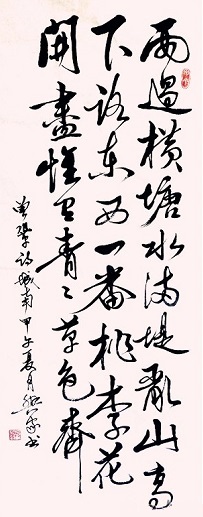 雨過橫塘水滿堤亂山高
下路東西一番桃李花
開盡惟有青〻草色齊
曾鞏詩城南甲午夏月書